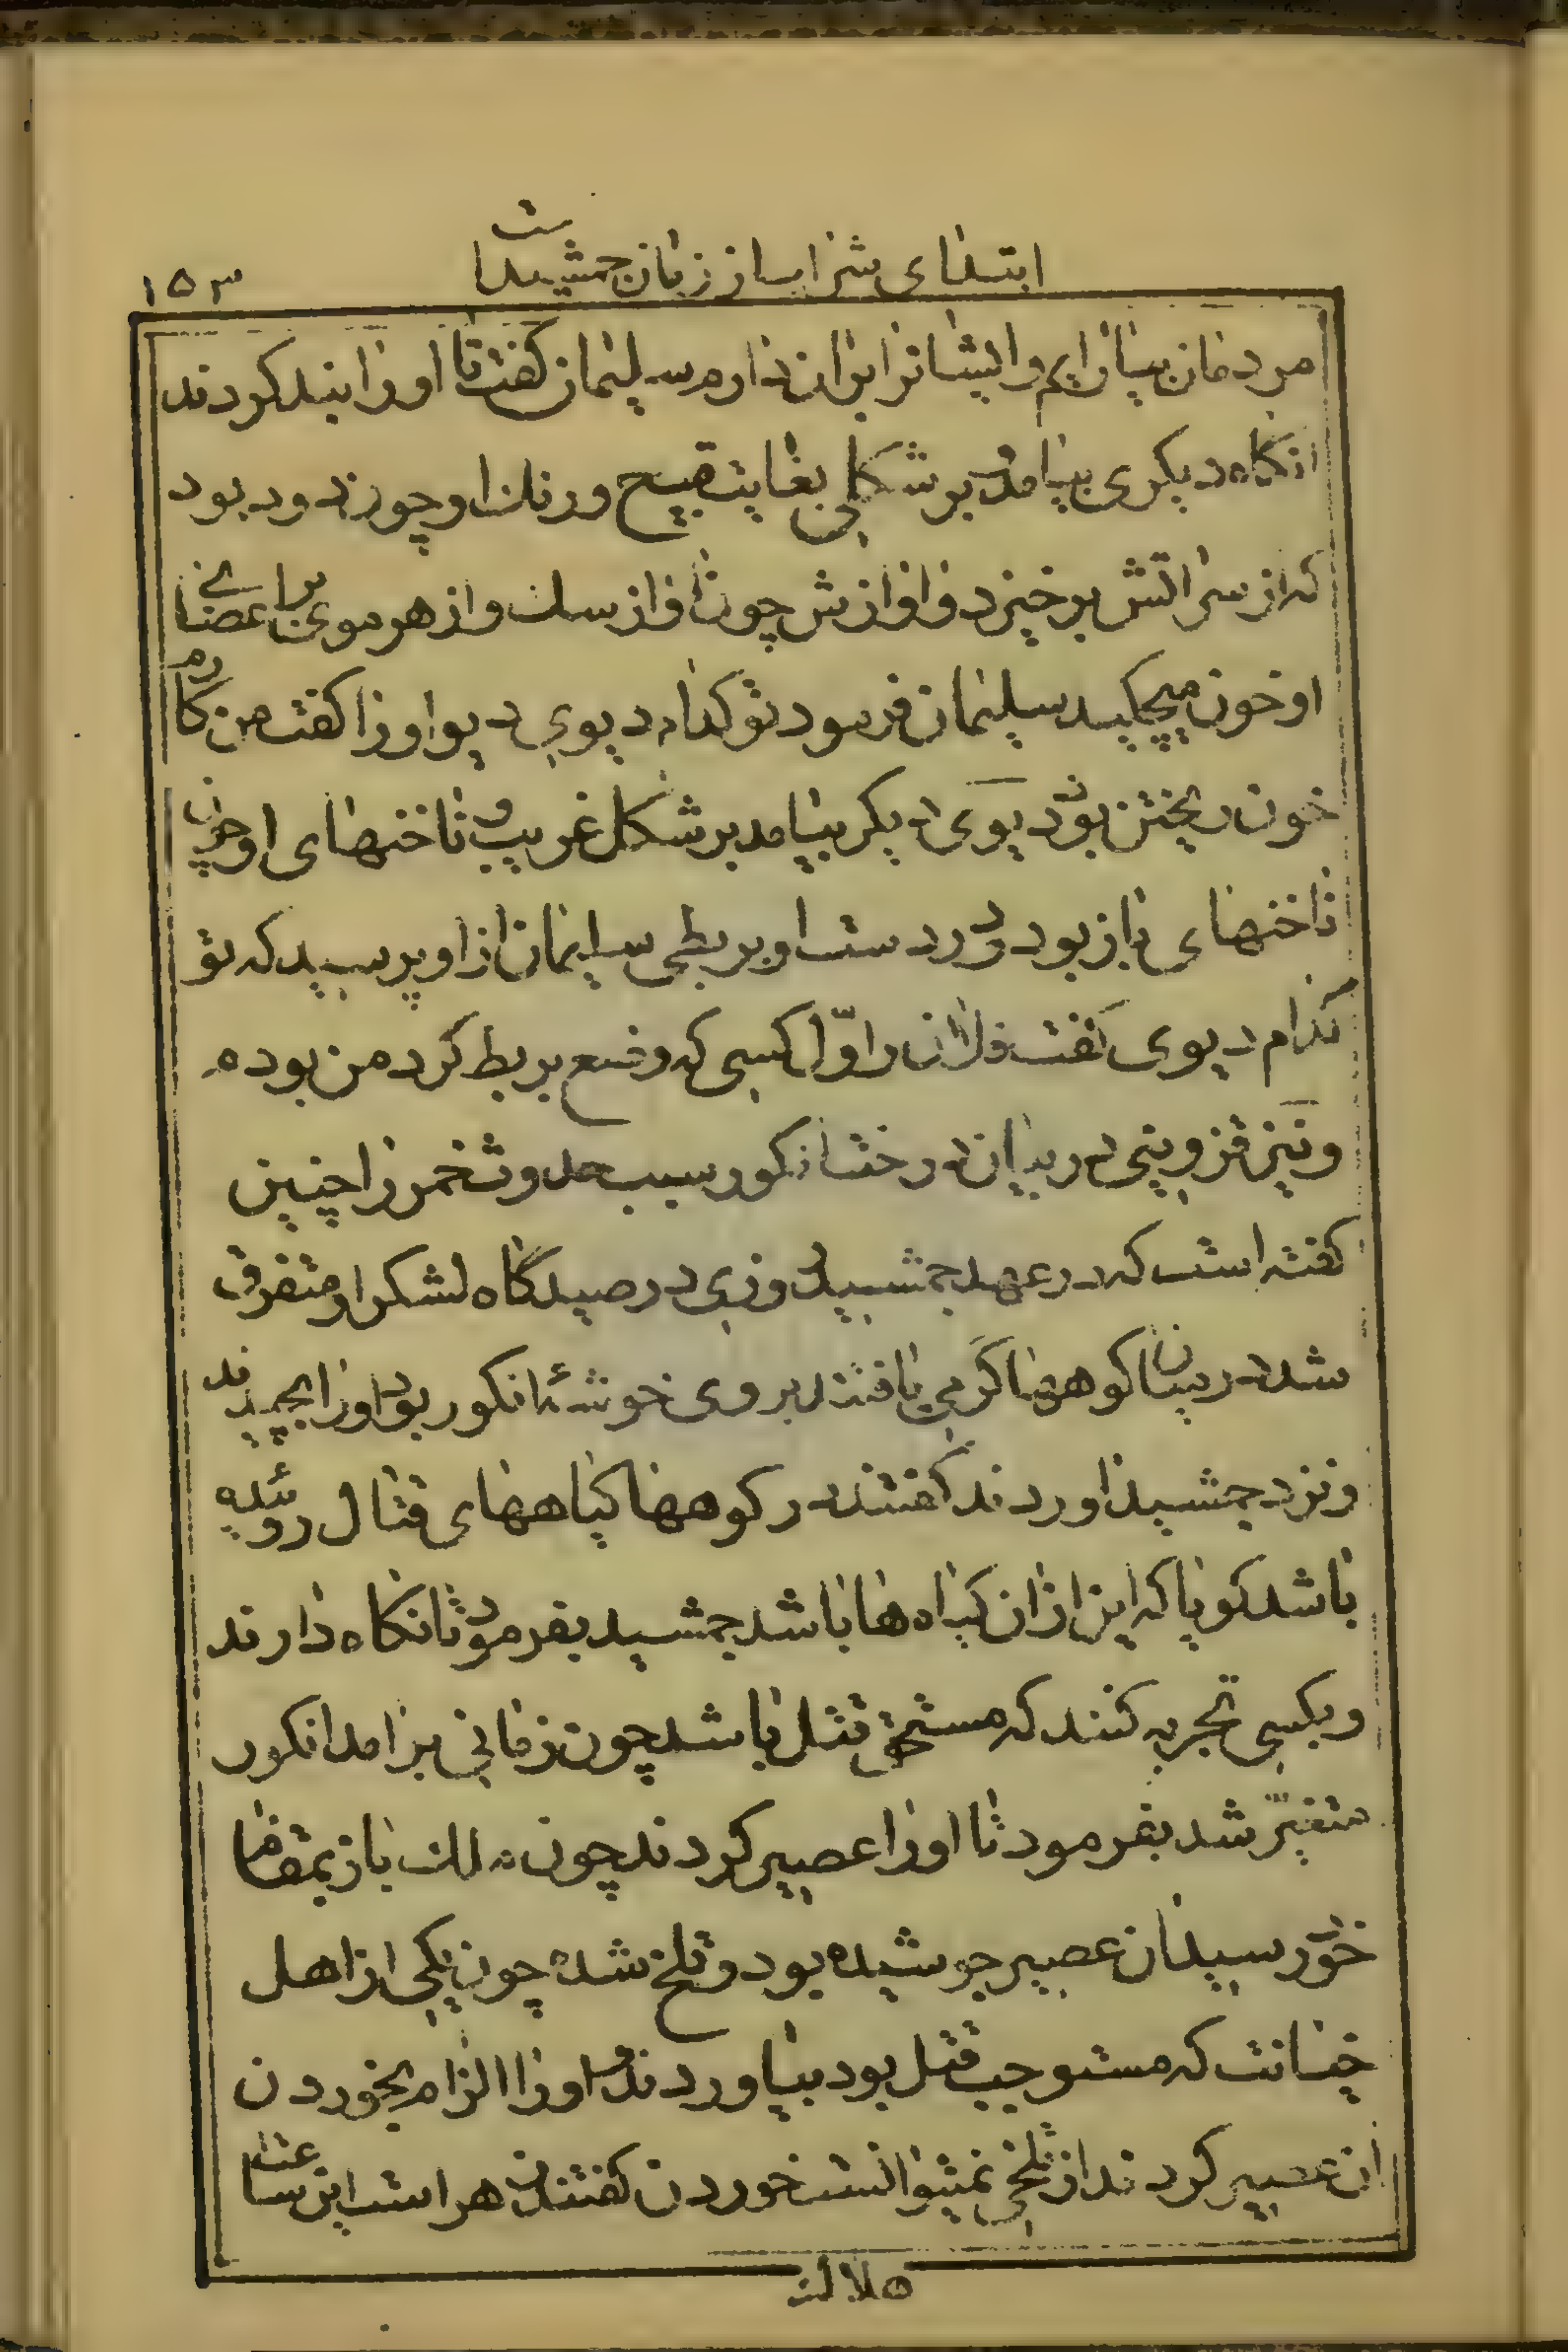 ابتدای شراب از زمان جمشید است
۱۵۳
مردمان بیارایم و ایشانرا بران دارم سلیمان گفت تا اورا بند کردند
انکاه دیکری بیامد بر شکلی بغایت قبیح ورنک او چون دود بود
که از سر اتش برخیزد و اوازش چون اواز سک و از هر موی بر اعضای
او خون میچکید سلیمان فرمود تو کدام دیوی دیو اورا کفت من کارم
خون ریختن بود دیوی دیکر بیامد بر شکل غریب و ناخنهای او چون
ناخنهای باز بود و در دست او بربطی سلیمان از او پرسید که تو
کدام دیوی کفت فلان و اوّل کسی که وضع بربط کرد من بودم
و نیز قزوینی در بیان درخت انکور سبب حدوث خمر را چنین
کفته است که در عهد جمشید روزی در صیدگاه لشکر او متفرق
شد در میان کوهها کرمی یافتند بروی خوشهٔ انکور بود اورا بچیدند
و نزد جمشید اوردند کفتند در کوهها کیاههای قتال روئیده
باشد کویا که این از ان کیاه ها باشد جمشید بفرمود تا نکاه دارند
و بکسی تجربه کنند که مستحق قتل باشد چون زمانی برامد انکور
متغیّر شد بفرمود تا اورا عصیر کردند چون ملک باز بمقام
خود رسید ان عصیر جوشیده بود و تلخ شده چون یکی از اهل
خیانت که مستوجب قتل بود بیاوردند و اورا الزام بخوردن
ان عصیر کردند از تلخی نمیتوانست خوردن کفتند زهر است این ساعت
هلاک